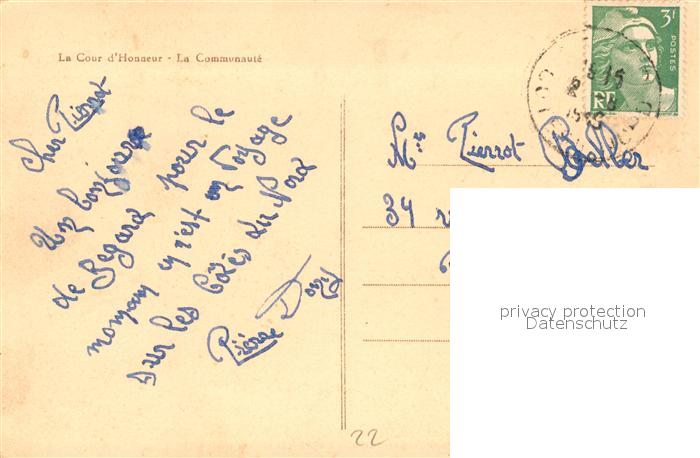 La Cour d'Honneur - La Communauté
Cher Pierrot
Un bonjour
de Bégard pour le
moment en c'est un voyage
sur les Côtes du Nord
Pierre
Mr Pierrot
34
3f
POSTES
RF
privacy protection
Datenschutz
22